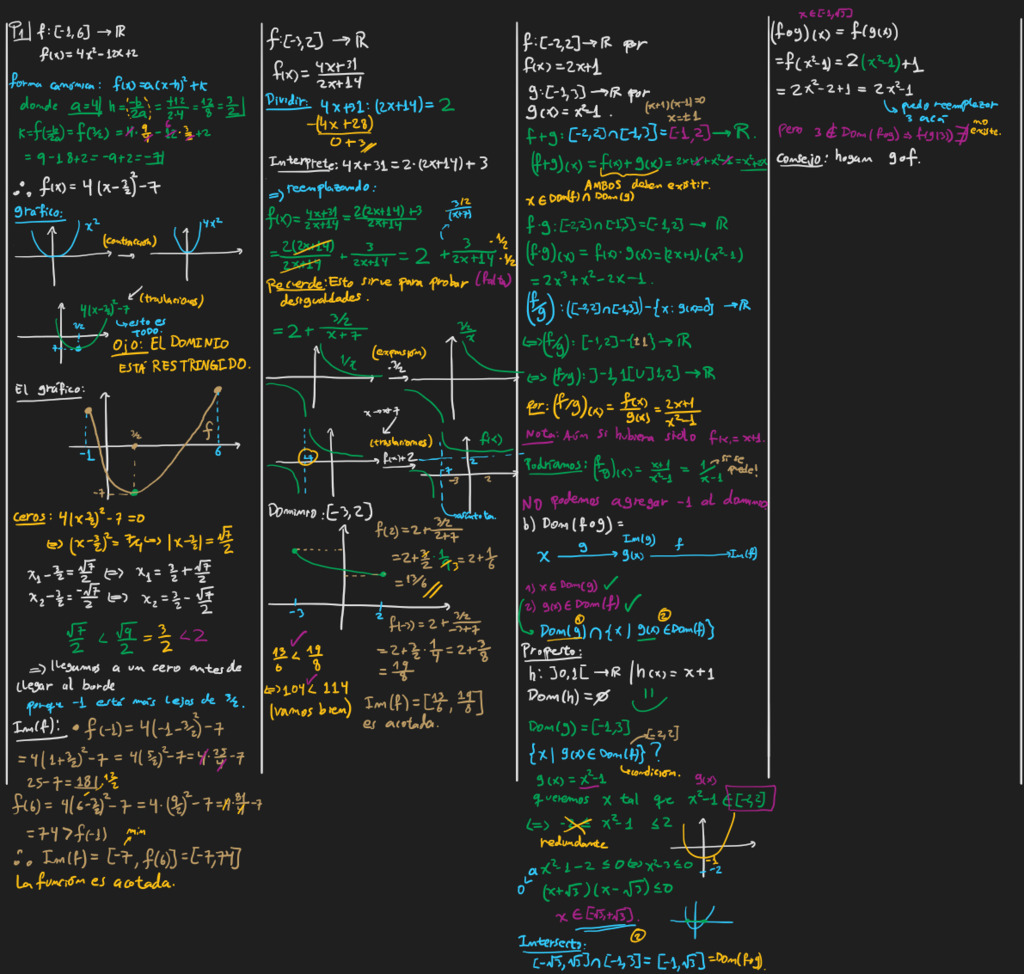 P1 f:[-1,6] → ℝ
f(x) = 4x²-12x+2
forma canónica: f(x) = a(x-h)²+k
donde a=4 h = -b/2a = +12/2·4 = 12/8 = 3/2
k = f(-b/2a) = f(3/2) = 4·9/4 - 12·3/2 + 2
= 9-18+2 = -9+2 = -7
∴ f(x) = 4(x-3/2)²-7
gráfico:
x²
(contracción)
4x²
4(x-3/2)²-7
(traslaciones)
3/2
↳ esto es TODO.
OJO: EL DOMINIO
ESTÁ RESTRINGIDO.
El gráfico:
-1 3/2 f 6
-7
Ceros: 4(x-3/2)²-7=0
⇔ (x-3/2)² = 7/4 ⇔ |x-3/2| = √7/2
x₁-3/2 = √7/2 ⇔ x₁ = 3/2+√7/2
x₂-3/2 = -√7/2 ⇔ x₂ = 3/2-√7/2
√7/2 < √9/2 = 3/2 < 2
⇒ llegamos a un cero antes de
llegar al borde
porque -1 está más lejos de 3/2.
Im(f): • f(-1) = 4(-1-3/2)²-7
= 4(1+3/2)²-7 = 4(5/2)²-7 = 4·25/4-7
25-7 = 18
f(6) = 4(6-3/2)²-7 = 4·(9/2)²-7 = 4·81/4-7
= 74 > f(-1)
min
∴ Im(f) = [-7, f(6)] = [-7,74]
La función es acotada.
f:[-3,2] → ℝ
f(x) = 4x+31/2x+14
Dividir: 4x+31:(2x+14) = 2
-(4x+28)
0+3
Interprete: 4x+31 = 2·(2x+14)+3
⇒ reemplazando:
f(x) = 4x+31/2x+14 = 2(2x+14)+3/2x+14
3/2/(x+7)
= 2(2x+14)/2x+14 + 3/2x+14 = 2 + 3/2x+14 ·1/2/·1/2
Recuerde: Esto sirve para probar (falta)
desigualdades.
= 2 + 3/2/x+7
1/x
(expansión)
·3/2
3/2/x
x→x+7
(traslaciones)
f(x)+2
-7
f(x)
-7 2
-3 2
asíntota
Dominio: [-3,2]
-3 2
f(2) = 2+3/2/2+7
= 2+3/2·1/9 = 2+1/6
= 13/6
f(-3) = 2+3/2/-3+7
= 2+3/2·1/4 = 2+3/8
= 19/8
13/6 < 19/8
⇔ 104 < 114
(vamos bien)
Im(f) = [13/6, 19/8]
es acotada.
f:[-2,2] → ℝ por
f(x) = 2x+1
g:[-1,3] → ℝ por
g(x) = x²-1
(x+1)(x-1)=0
x=±1
f+g: [-2,2]∩[-1,3] = [-1,2] → ℝ.
(f+g)(x) = f(x)+g(x) = 2x+1+x²-1 = x²+2x
AMBOS deben existir.
x∈Dom(f)∩Dom(g)
f·g: [-2,2]∩[-1,3] = [-1,2] → ℝ
(f·g)(x) = f(x)·g(x) = (2x+1)·(x²-1)
= 2x³+x²-2x-1.
(f/g): ([-2,2]∩[-1,3])-{x: g(x)=0} → ℝ
⇔ (f/g): [-1,2]-{±1} → ℝ
⇔ (f/g): ]-1,1[∪]1,2] → ℝ
por: (f/g)(x) = f(x)/g(x) = 2x+1/x²-1
Nota: Aún si hubiera sido f(x)=x+1.
Podríamos: (f/g)(x) = x+1/x²-1 = 1/x-1 si se puede!
NO podemos agregar -1 al dominio
b) Dom(fog) =
x g g(x) Im(g) f Im(f)
1) x∈Dom(g) ✓
2) g(x)∈Dom(f) ✓
① ②
Dom(g)∩{x | g(x)∈Dom(f)}
Propuesto:
h: ]0,1[ → ℝ / h(x) = x+1
Dom(h) = ∅
Dom(g) = [-1,3]
[-2,2]
{x | g(x)∈Dom(f)} ?
↳ condición.
g(x) = x²-1 g(x)
queremos x tal que x²-1∈[-2,2]
⇔ -2≤ x²-1 ≤2
redundante
-1
-2
x²-1-2≤0 ⇔ x²-3≤0
(x+√3)(x-√3)≤0
x∈[-√3,+√3].
②
Intersecto:
[-√3,√3]∩[-1,3] = [-1,√3] = Dom(fog).
x∈[-1,√3]
(fog)(x) = f(g(x))
= f(x²-1) = 2(x²-1)+1
= 2x²-2+1 = 2x²-1
↳ puedo reemplazar
3 acá
Pero 3∉Dom(fog) ⇒ f(g(3)) no existe.
Consejo: hagan gof.